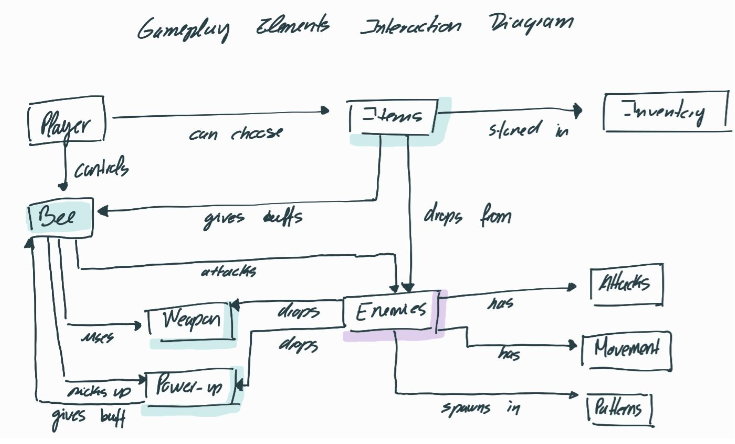 Gameplay Elements Interaction Diagram
Player
can choose
Items
stored in
Inventory
controls
Bee
gives buffs
drops from
attacks
uses
Weapon
drops
Enemies
has
Attacks
drops
has
Movement
picks up
Power-up
gives buff
spawns in
Patterns